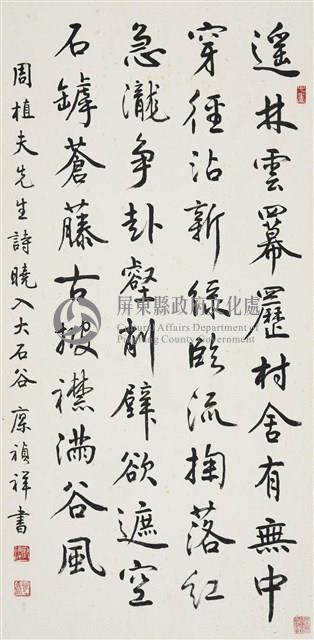 遙林雲羃䍥村舍有無中
穿徑沾新綠臨流掬落紅
急瀧争赴壑削壁欲遮空
石罅蒼藤古披襟滿谷風
周植夫先生詩曉入大石谷 廖禎祥書
屏東縣政府文化處
Cultural Affairs Department of
Pingtung County Government